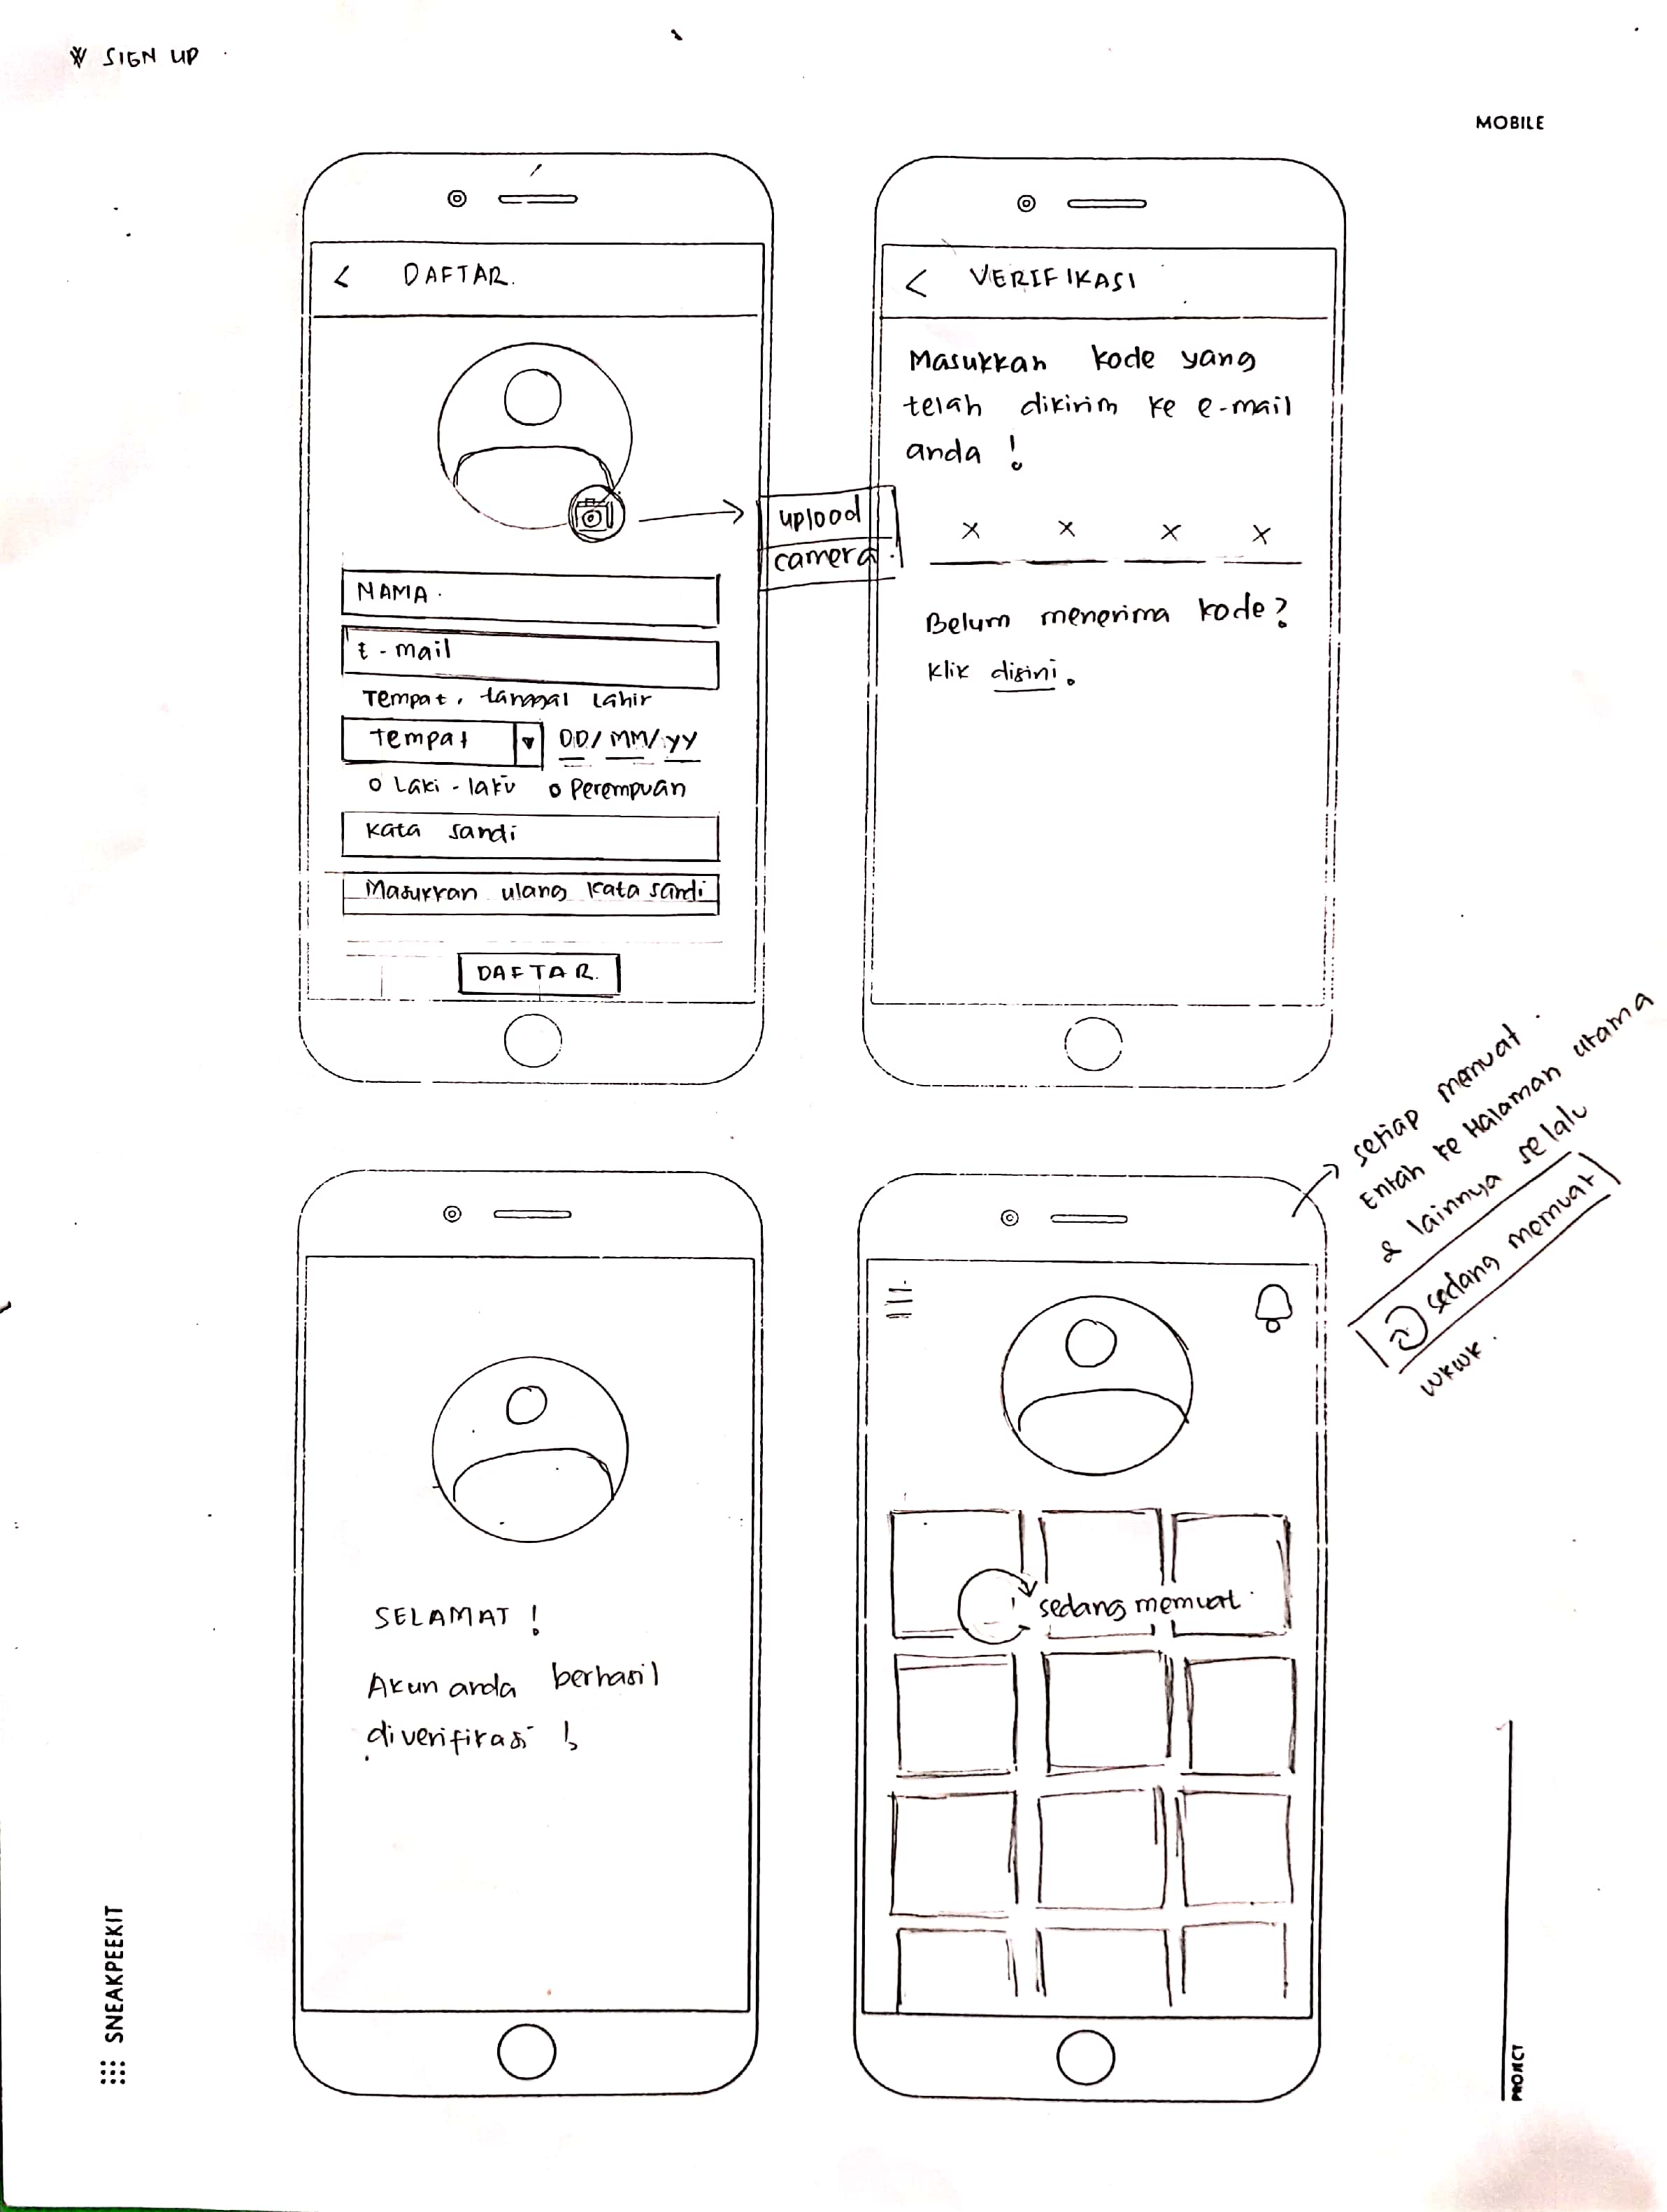 SIGN UP
MOBILE
< DAFTAR.
upload
camera.
NAMA.
E-mail
Tempat, tanggal Lahir
Tempat DD/MM/YY
Laki-laki Perempuan
Kata sandi
Masukkan ulang kata sandi
DAFTAR.
< VERIFIKASI
Masukkan kode yang
telah dikirim ke e-mail
anda !
x x x x
Belum menerima kode?
Klik disini.
SELAMAT !
Akun anda berhasil
diverifikasi !
sedang memuat.
setiap memuat.
Entah ke Halaman utama
& lainnya selalu
sedang memuat
wkwk.
SNEAKPEEKIT
PROJECT